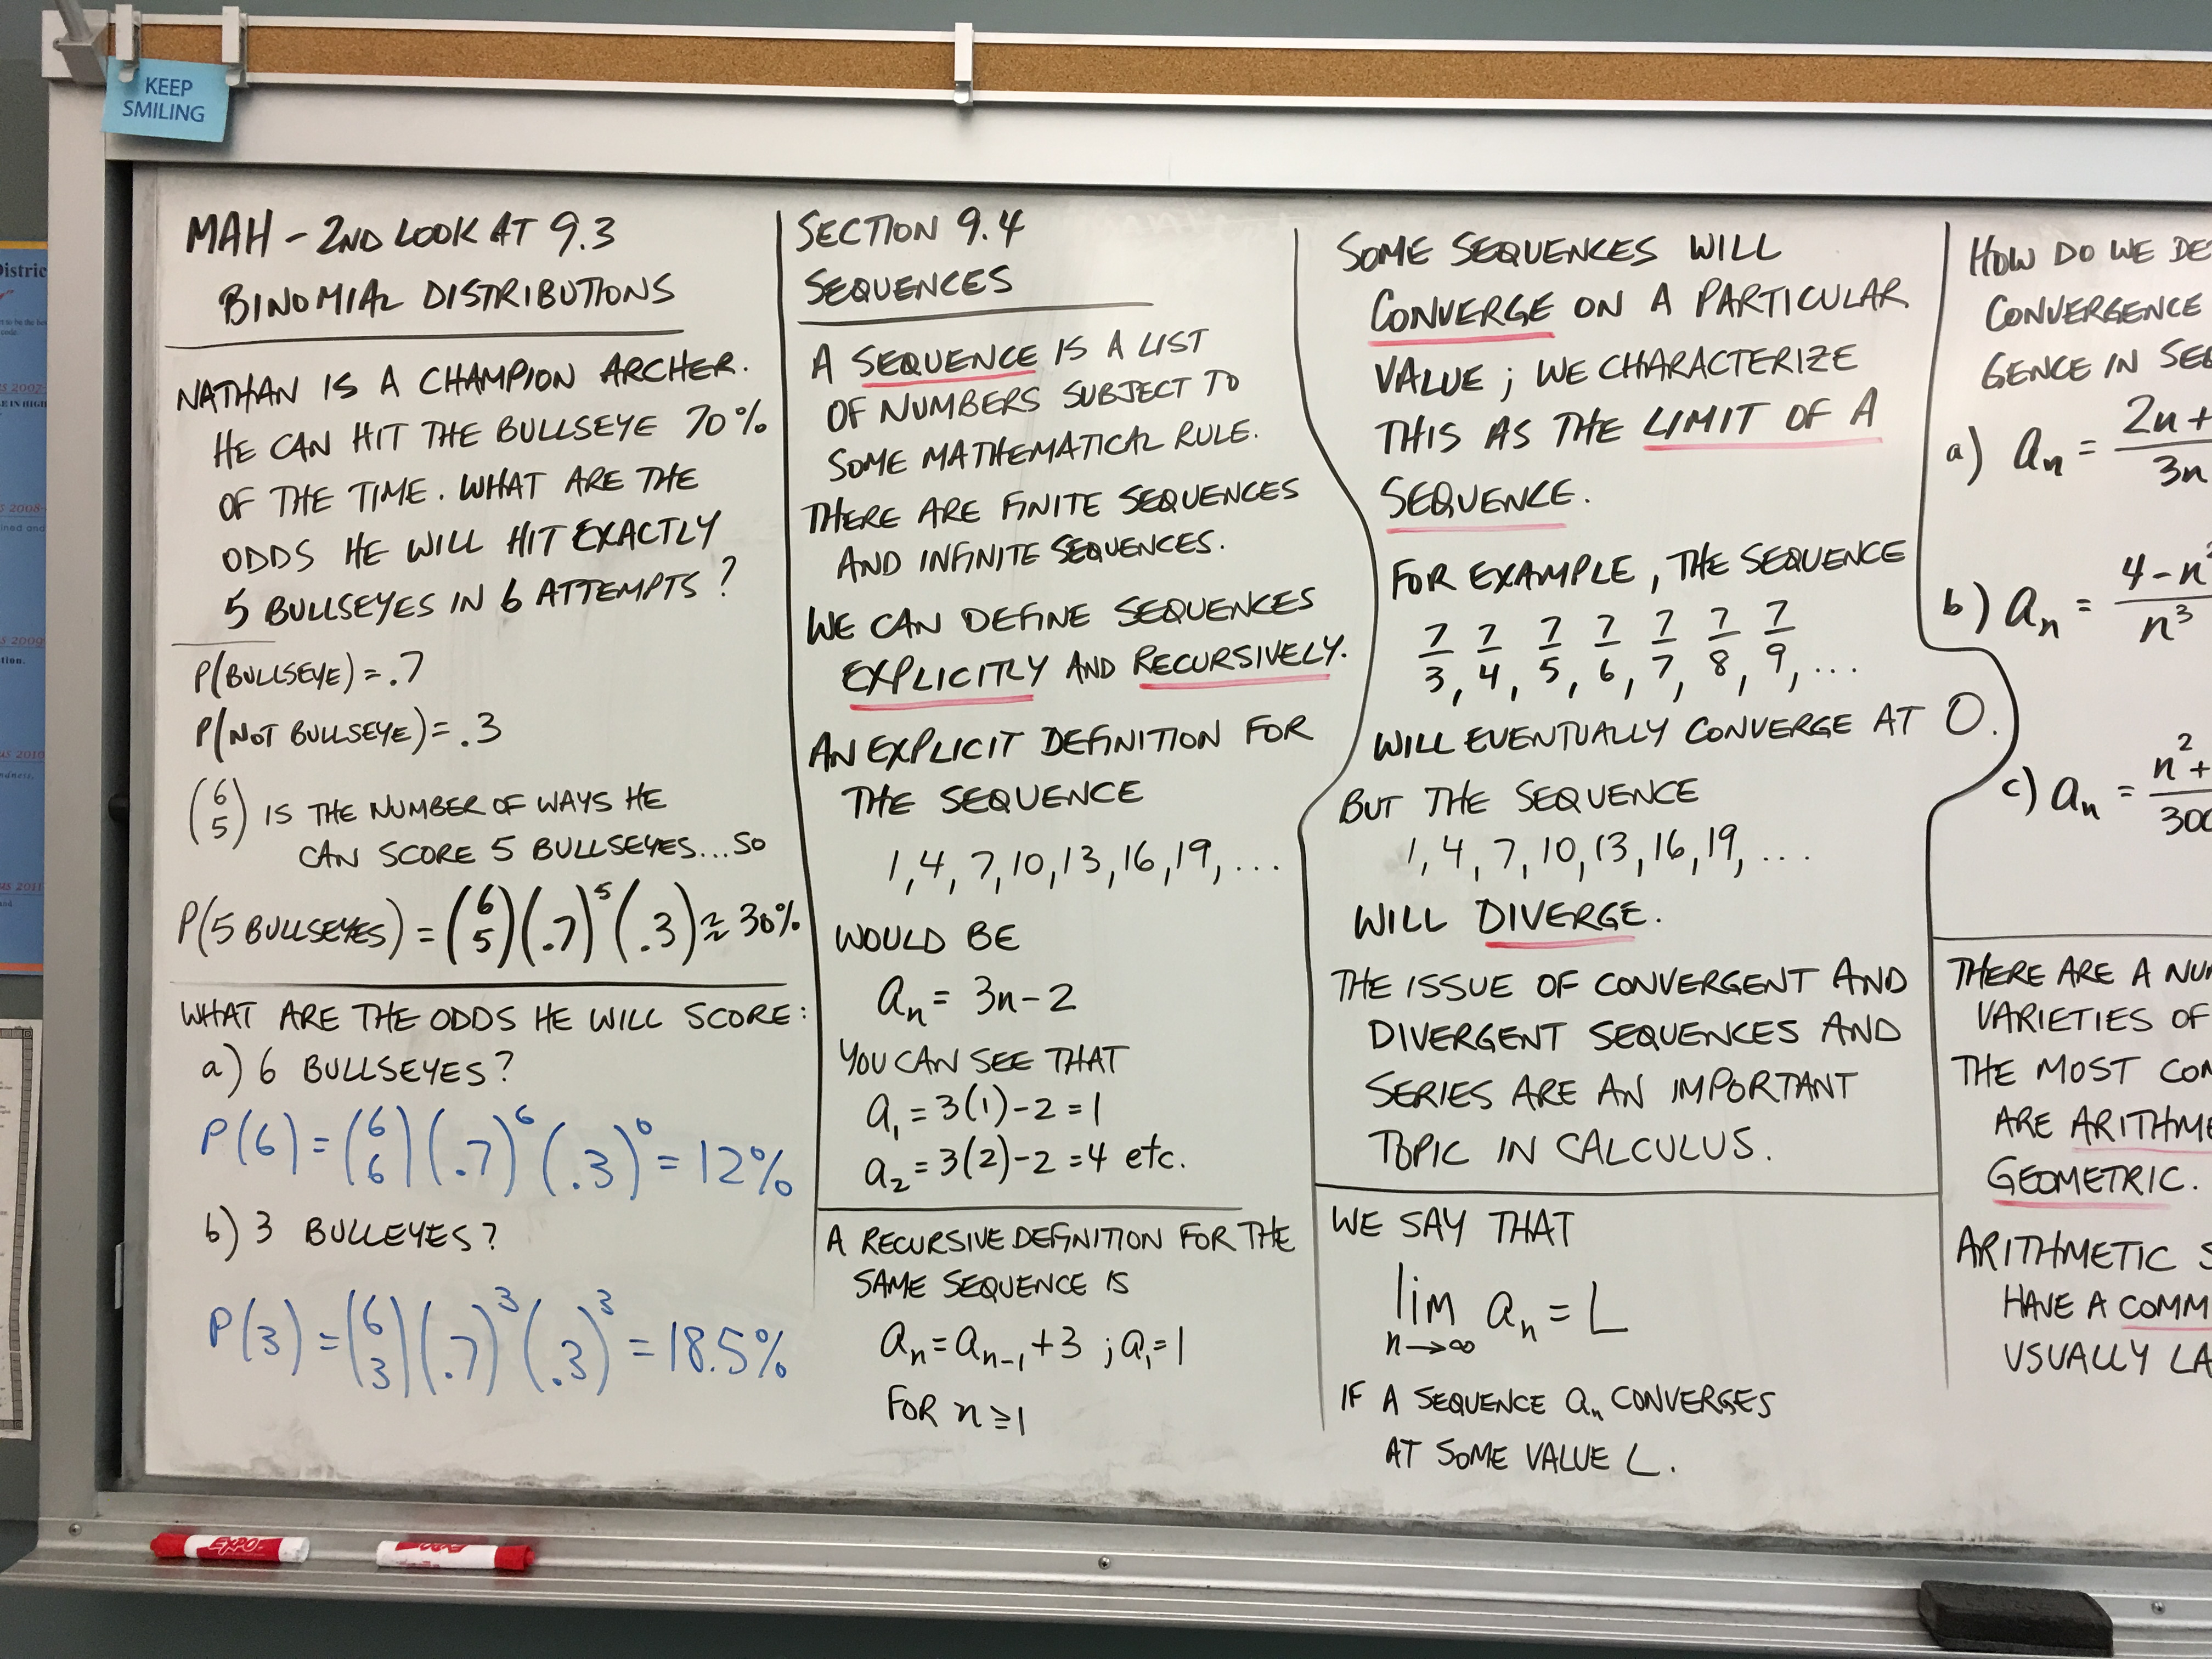 KEEP
SMILING
MAH - 2ND LOOK AT 9.3
BINOMIAL DISTRIBUTIONS
NATHAN IS A CHAMPION ARCHER.
HE CAN HIT THE BULLSEYE 70%
OF THE TIME. WHAT ARE THE
ODDS HE WILL HIT EXACTLY
5 BULLSEYES IN 6 ATTEMPTS?
P(BULLSEYE) = .7
P(NOT BULLSEYE) = .3
(6 5) IS THE NUMBER OF WAYS HE
CAN SCORE 5 BULLSEYES... SO
P(5 BULLSEYES) = (6 5)(.7)^5(.3) ≈ 30%
WHAT ARE THE ODDS HE WILL SCORE:
a) 6 BULLSEYES?
P(6) = (6 6)(.7)^6(.3)^0 = 12%
b) 3 BULLEYES?
P(3) = (6 3)(.7)^3(.3)^3 = 18.5%
SECTION 9.4
SEQUENCES
A SEQUENCE IS A LIST
OF NUMBERS SUBJECT TO
SOME MATHEMATICAL RULE.
THERE ARE FINITE SEQUENCES
AND INFINITE SEQUENCES.
WE CAN DEFINE SEQUENCES
EXPLICITLY AND RECURSIVELY.
AN EXPLICIT DEFINITION FOR
THE SEQUENCE
1, 4, 7, 10, 13, 16, 19, ...
WOULD BE
aₙ = 3n - 2
YOU CAN SEE THAT
a₁ = 3(1) - 2 = 1
a₂ = 3(2) - 2 = 4 etc.
A RECURSIVE DEFINITION FOR THE
SAME SEQUENCE IS
aₙ = aₙ₋₁ + 3 ; a₁ = 1
FOR n ≥ 1
SOME SEQUENCES WILL
CONVERGE ON A PARTICULAR
VALUE; WE CHARACTERIZE
THIS AS THE LIMIT OF A
SEQUENCE.
FOR EXAMPLE, THE SEQUENCE
7/3, 7/4, 7/5, 7/6, 7/7, 7/8, 7/9, ...
WILL EVENTUALLY CONVERGE AT 0.
BUT THE SEQUENCE
1, 4, 7, 10, 13, 16, 19, ...
WILL DIVERGE.
THE ISSUE OF CONVERGENT AND
DIVERGENT SEQUENCES AND
SERIES ARE AN IMPORTANT
TOPIC IN CALCULUS.
WE SAY THAT
lim n→∞ aₙ = L
IF A SEQUENCE aₙ CONVERGES
AT SOME VALUE L.
HOW DO WE DE
CONVERGENCE
GENCE IN SEQ
a) aₙ = 2n +/3n
b) aₙ = 4 - n²/n³
c) aₙ = n² +/300
THERE ARE A NUM
VARIETIES OF
THE MOST COM
ARE ARITHME
GEOMETRIC.
ARITHMETIC S
HAVE A COMM
USUALLY LA
EXPO